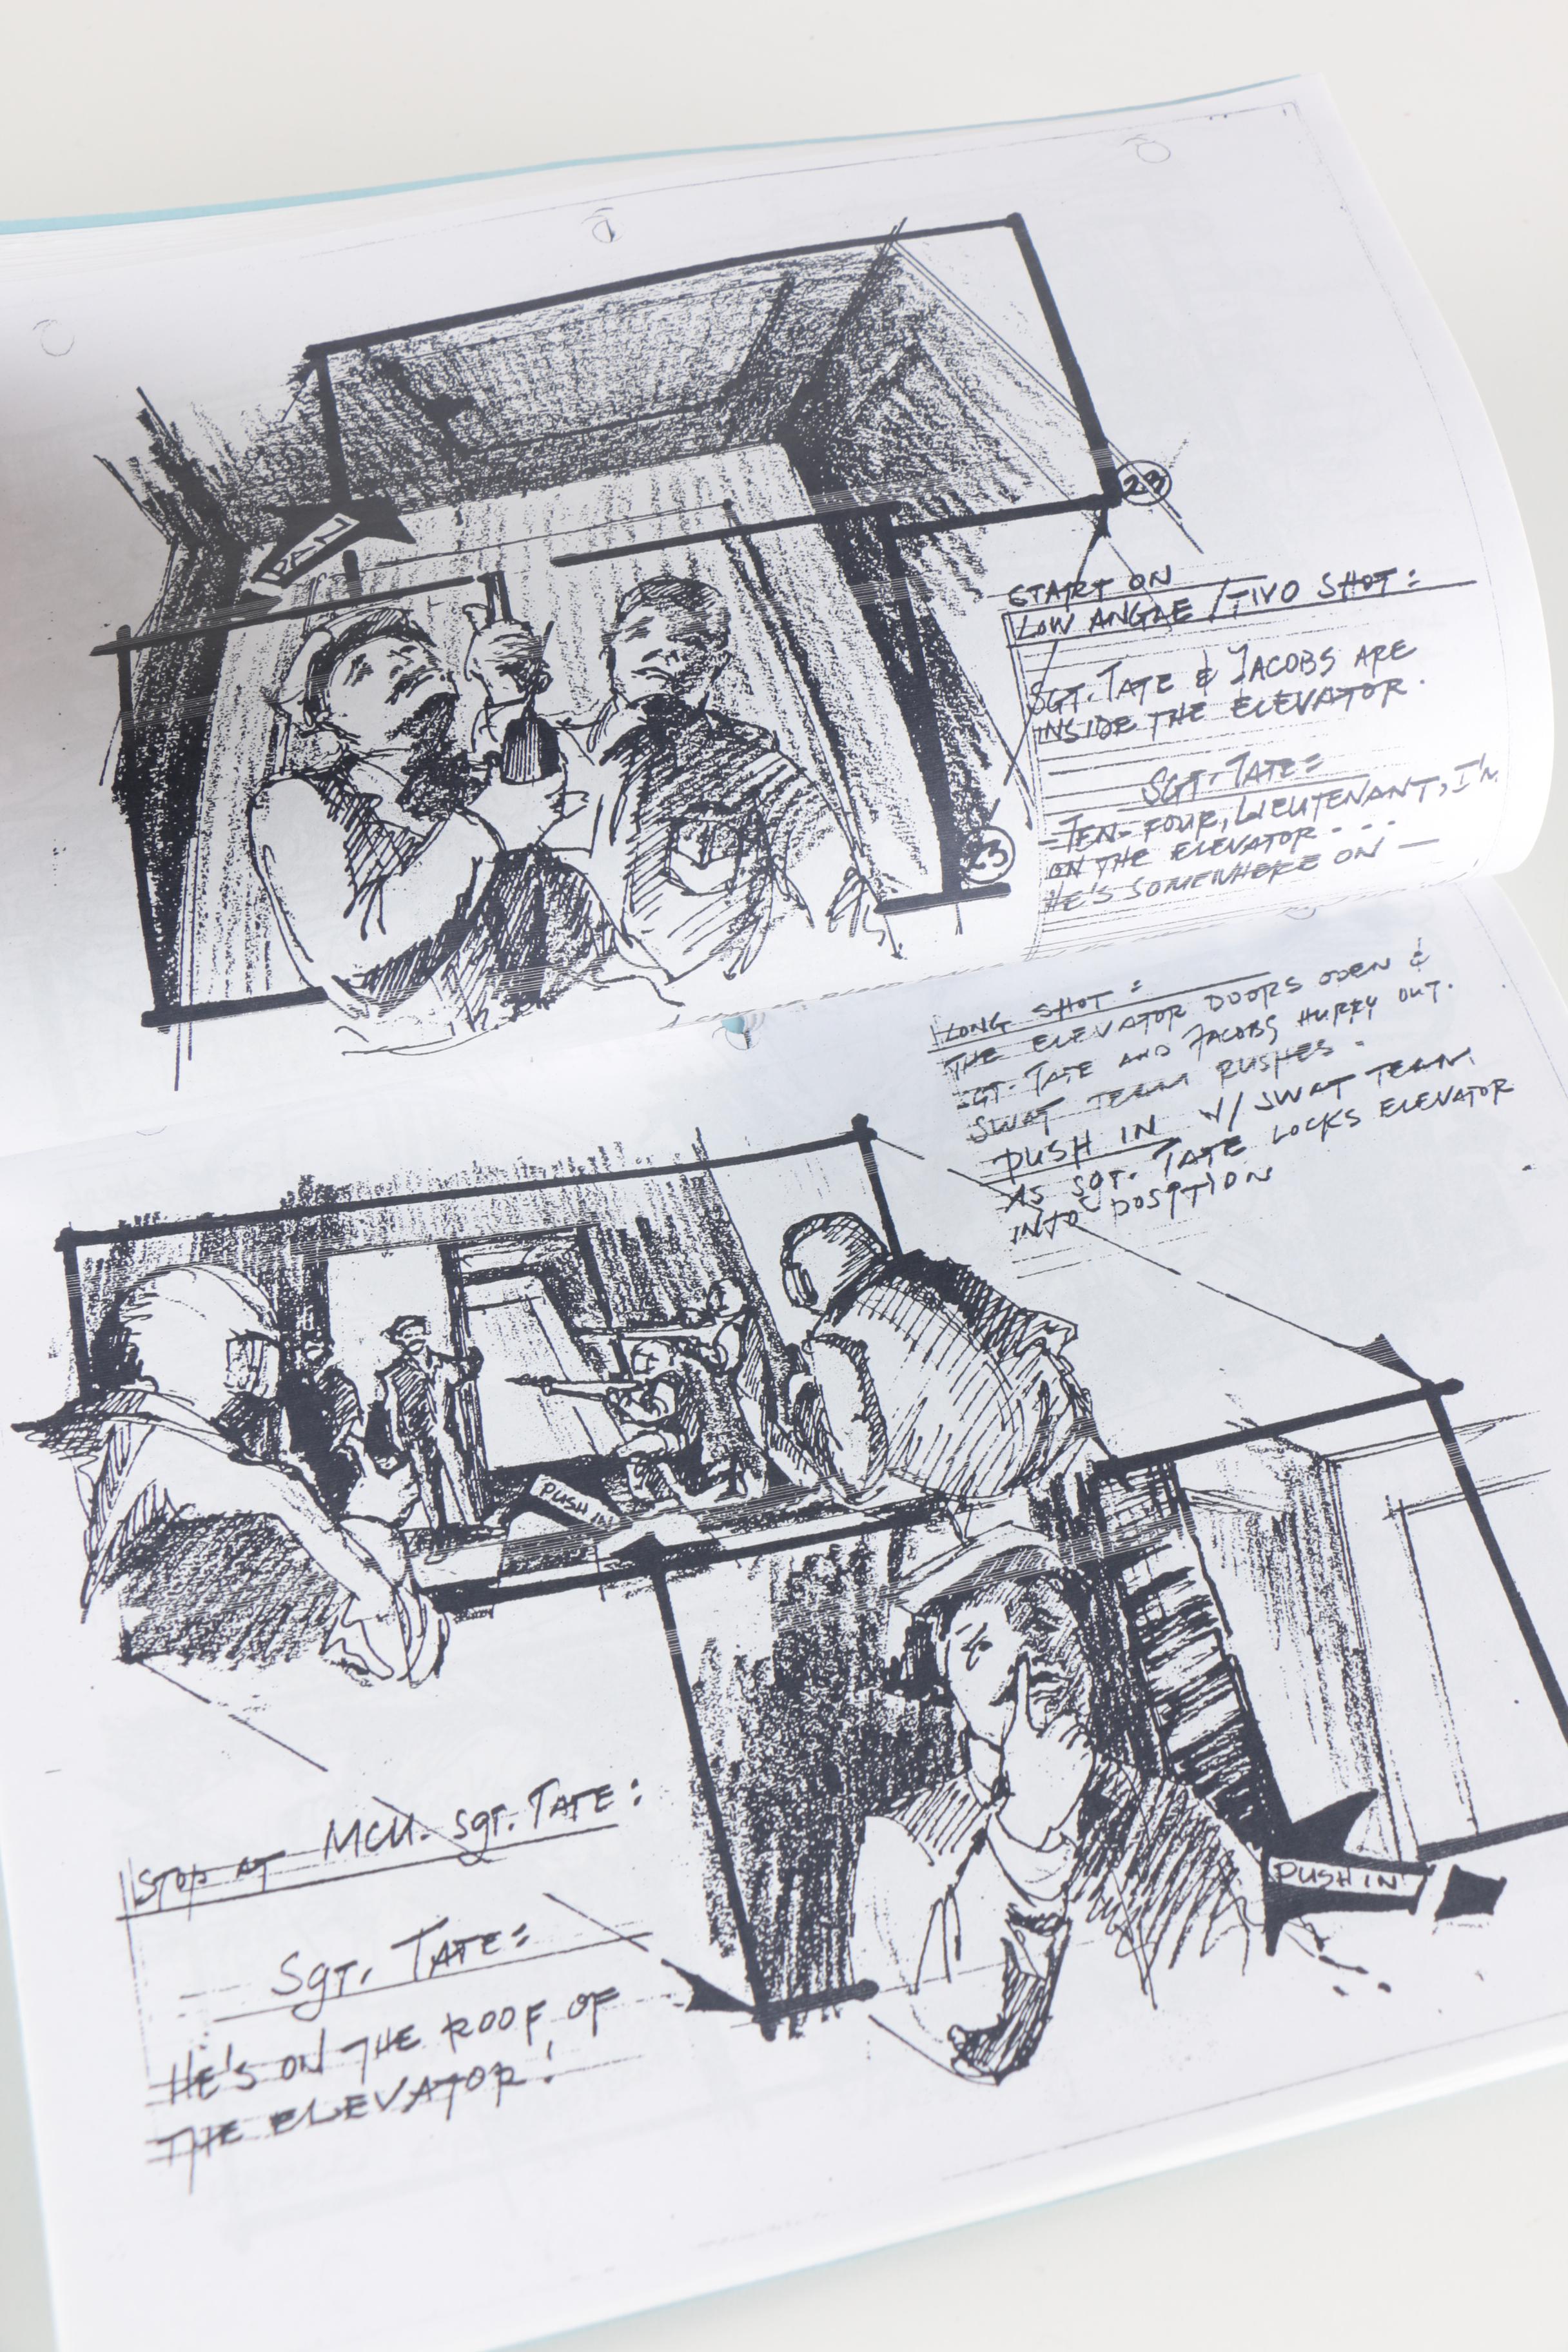 23
PAN
START ON
LOW ANGLE / TWO SHOT:
SGT. TATE & JACOBS ARE
INSIDE THE ELEVATOR.
SGT. TATE:
TEN-FOUR, LIEUTENANT, I'M
ON THE ELEVATOR...
HE'S SOMEWHERE ON —
23
LONG SHOT:
THE ELEVATOR DOORS OPEN &
SGT. TATE AND JACOBS HURRY OUT.
SWAT TEAM RUSHES.
PUSH IN W/ SWAT TEAM
AS SGT. TATE LOCKS ELEVATOR
INTO POSITION
PUSH IN
STOP AT MCU. SGT. TATE:
PUSH IN
SGT. TATE:
HE'S ON THE ROOF OF
THE ELEVATOR!